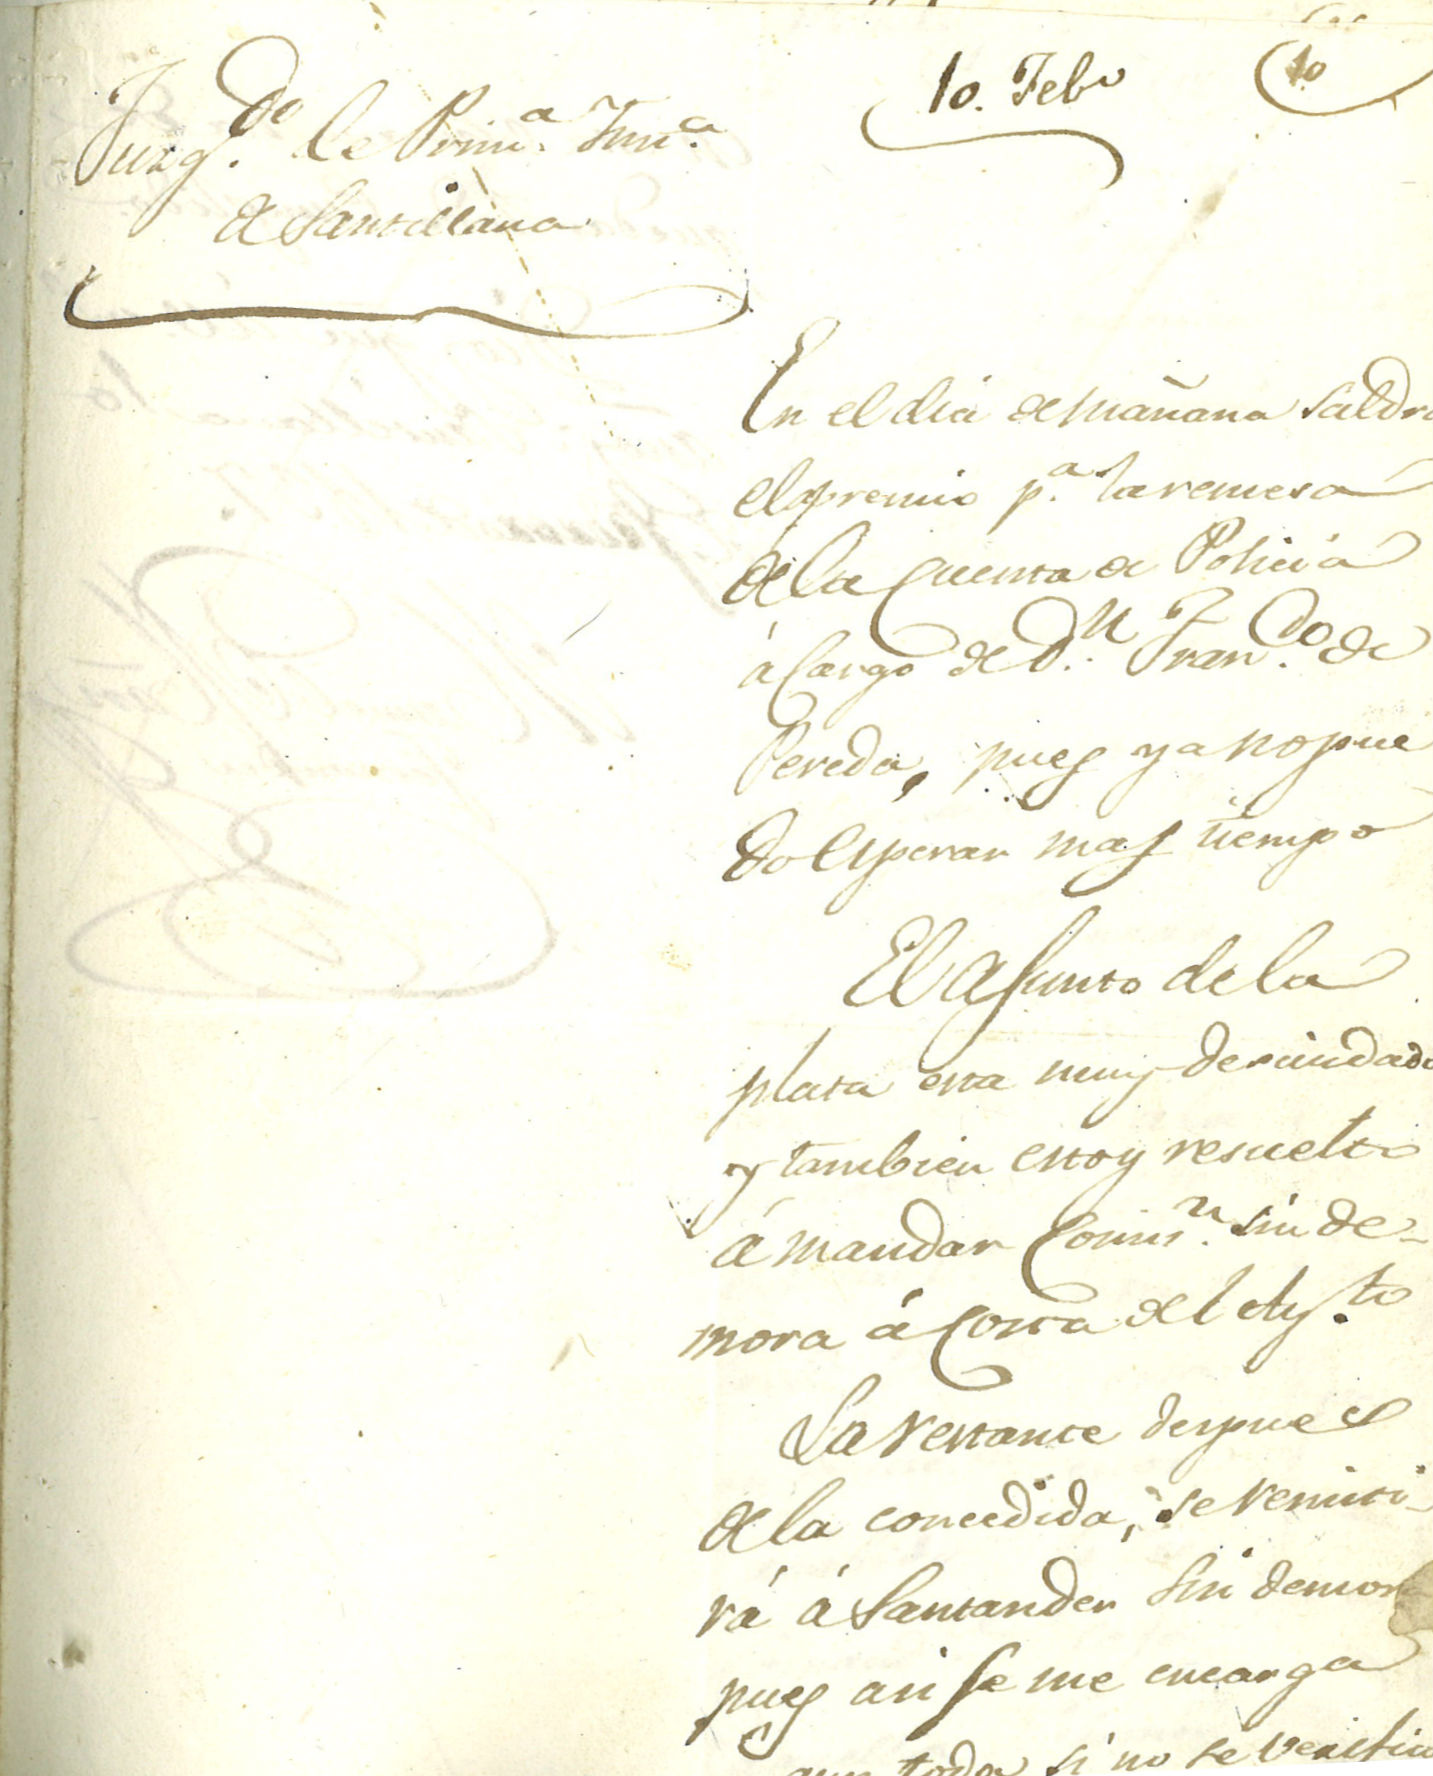 10. Febo
10
Juzg.do de Prim.a Inn.a
de Santillana
En el dia de mañana saldra
el apremio p.a la remesa
de la Cuenta de Policia
á Cargo de D.n Fran.do de
Pereda, pues ya no pue
do esperar mas tiempo
El asunto de la
plata esta muy descuidado
y tambien estoy resuelto
á mandar Comis.n sin de-
mora á Costa del Ay.to
La restante despues
de la concedida, se remiti-
rá á Santander sin demora
pues asi se me encarga
aun toda si no se verifica